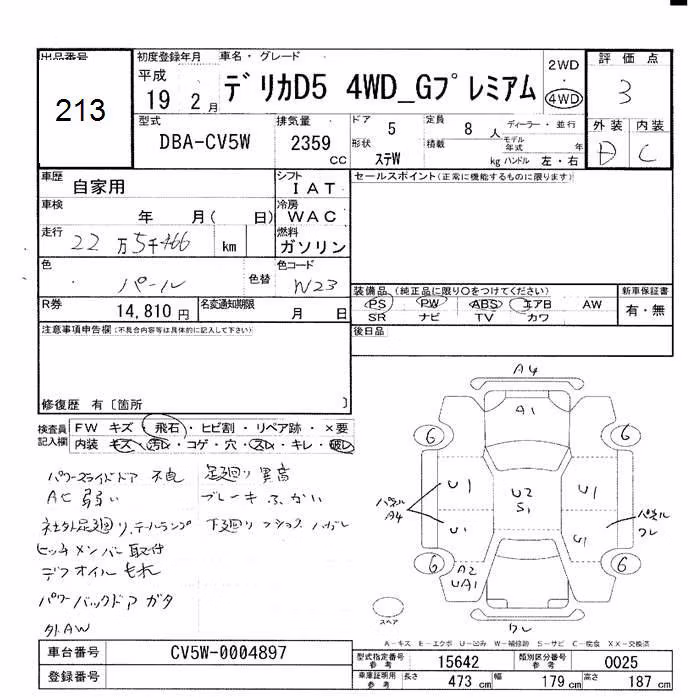 出品番号 初度登録年月 車名・グレード 評価点
213
平成 19 2月 デリカD5 4WD_Gプレミアム 2WD・4WD 3
型式 排気量 ドア 5 定員 8人 ディーラー・並行 外装 内装
DBA-CV5W 2359cc 形状 ステW 積載 kg モデル年式 年 ハンドル 左・右 D C
車歴 自家用 シフト IAT セールスポイント(正常に機能するものに限ります)
車検 年 月( 日) 冷房 WAC
走行 22万5千466 km 燃料 ガソリン
色 パール 色替 色コード W23
装備品(純正品に限り○をつけてください) 新車保証書
PS PW ABS エアB AW 有・無
SR ナビ TV カワ
R券 14,810円 名変通知期限 月 日
後日品
注意事項申告欄(不具合内容等は具体的に記入して下さい)
修復歴 有〔箇所 〕
検査員記入欄 FW キズ・飛石・ヒビ割・リペア跡・×要
内装 キズ・汚レ・コゲ・穴・スレ・キレ・破レ
パワースライドドア 不良 足廻り 異高
AC 弱い ブレーキ ふかい
社外足廻り、テールランプ 下廻り
ヒッチメンバー 取付
デフオイル もれ
パワーバックドア ガタ
外AW
A4
A1
6 6
U1 U2 S1 U1
パネル A4
U1 U1
パネル ワレ
6 6
A2 UA1
ワレ
スペア
A-キズ E-エクボ U-凹み W-補修跡 S-サビ C-腐食 XX-交換済
車台番号 CV5W-0004897
登録番号
型式指定番号 参考 15642 類別区分番号 参考 0025
車庫証明用 参考 長さ 473cm 幅 179cm 高さ 187cm